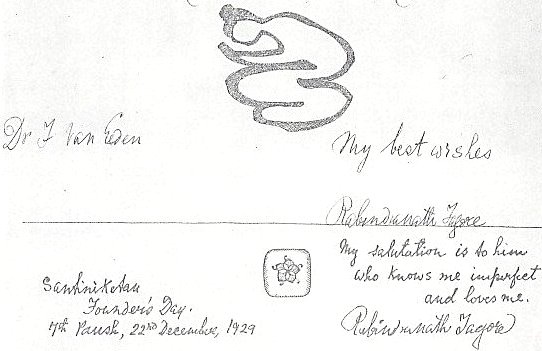 Dr F van Eeden
My best wishes
Rabindranath Tagore
My salutation is to him
who knows me imperfect
and loves me.
Rabindranath Tagore
Santiniketan
Founder's Day.
7th Paush, 22nd December, 1929